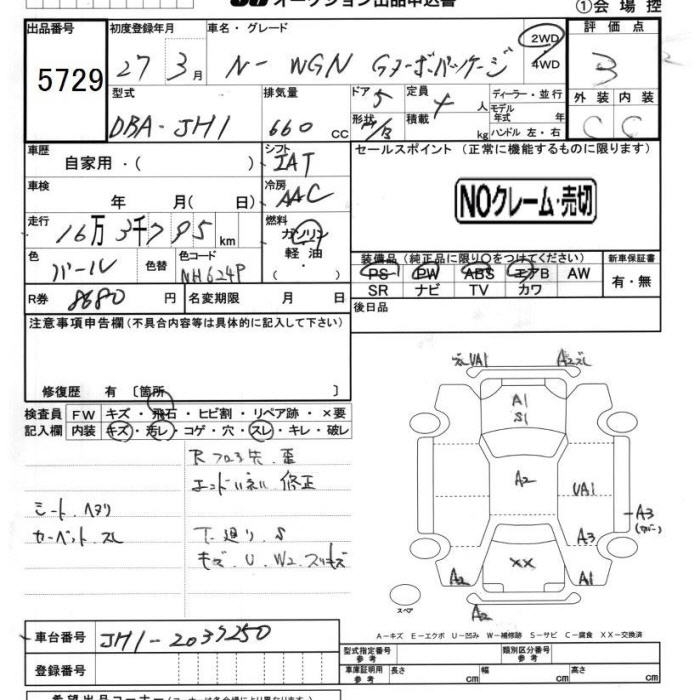 オークション出品申込書
①会場控
出品番号 初度登録年月 車名・グレード 2WD 4WD 評価点
5729 27 3月 N-WGN Gターボパッケージ 3
型式 排気量 ドア 5 定員 4 人 ディーラー・並行 外装 内装
DBA-JH1 660 CC 形状 積載 kg モデル年式 年 ハンドル 左・右 C C
車歴 自家用・( ) シフト IAT セールスポイント (正常に機能するものに限ります)
車検 年 月( 日) 冷房 AAC NOクレーム・売切
走行 16万3千795km 燃料 ガソリン 軽油 ( )・
色 パール 色替 色コード NH624P
装備品 (純正品に限り○をつけてください) 新車保証書
PS PW ABS エアB AW 有・無
SR ナビ TV カワ
R券 8680円 名変期限 月 日 後日品
注意事項申告欄 (不具合内容等は具体的に記入して下さい)
修復歴 有 〔箇所 〕
検査員 FW キズ・飛石・ヒビ割・リペア跡・×要
記入欄 内装 キズ・汚レ・コゲ・穴・スレ・キレ・破レ
Rフロア先 歪
エンドパネル 修正
シート.ヘタリ
カーペット.スレ
下廻り.S
キズ.U.W2.スリキズ
UA1 A2ズレ
A1
S1
A2
UA1
A3
A3
××
A2 A1
A2
スペア
A-キズ E-エクボ U-凹み W-補修跡 S-サビ C-腐食 XX-交換済
車台番号 JH1-2037250
登録番号
型式指定番号 参考 類別区分番号 参考
車庫証明用 参考 長さ cm 幅 cm 高さ cm
希望出品コーナー